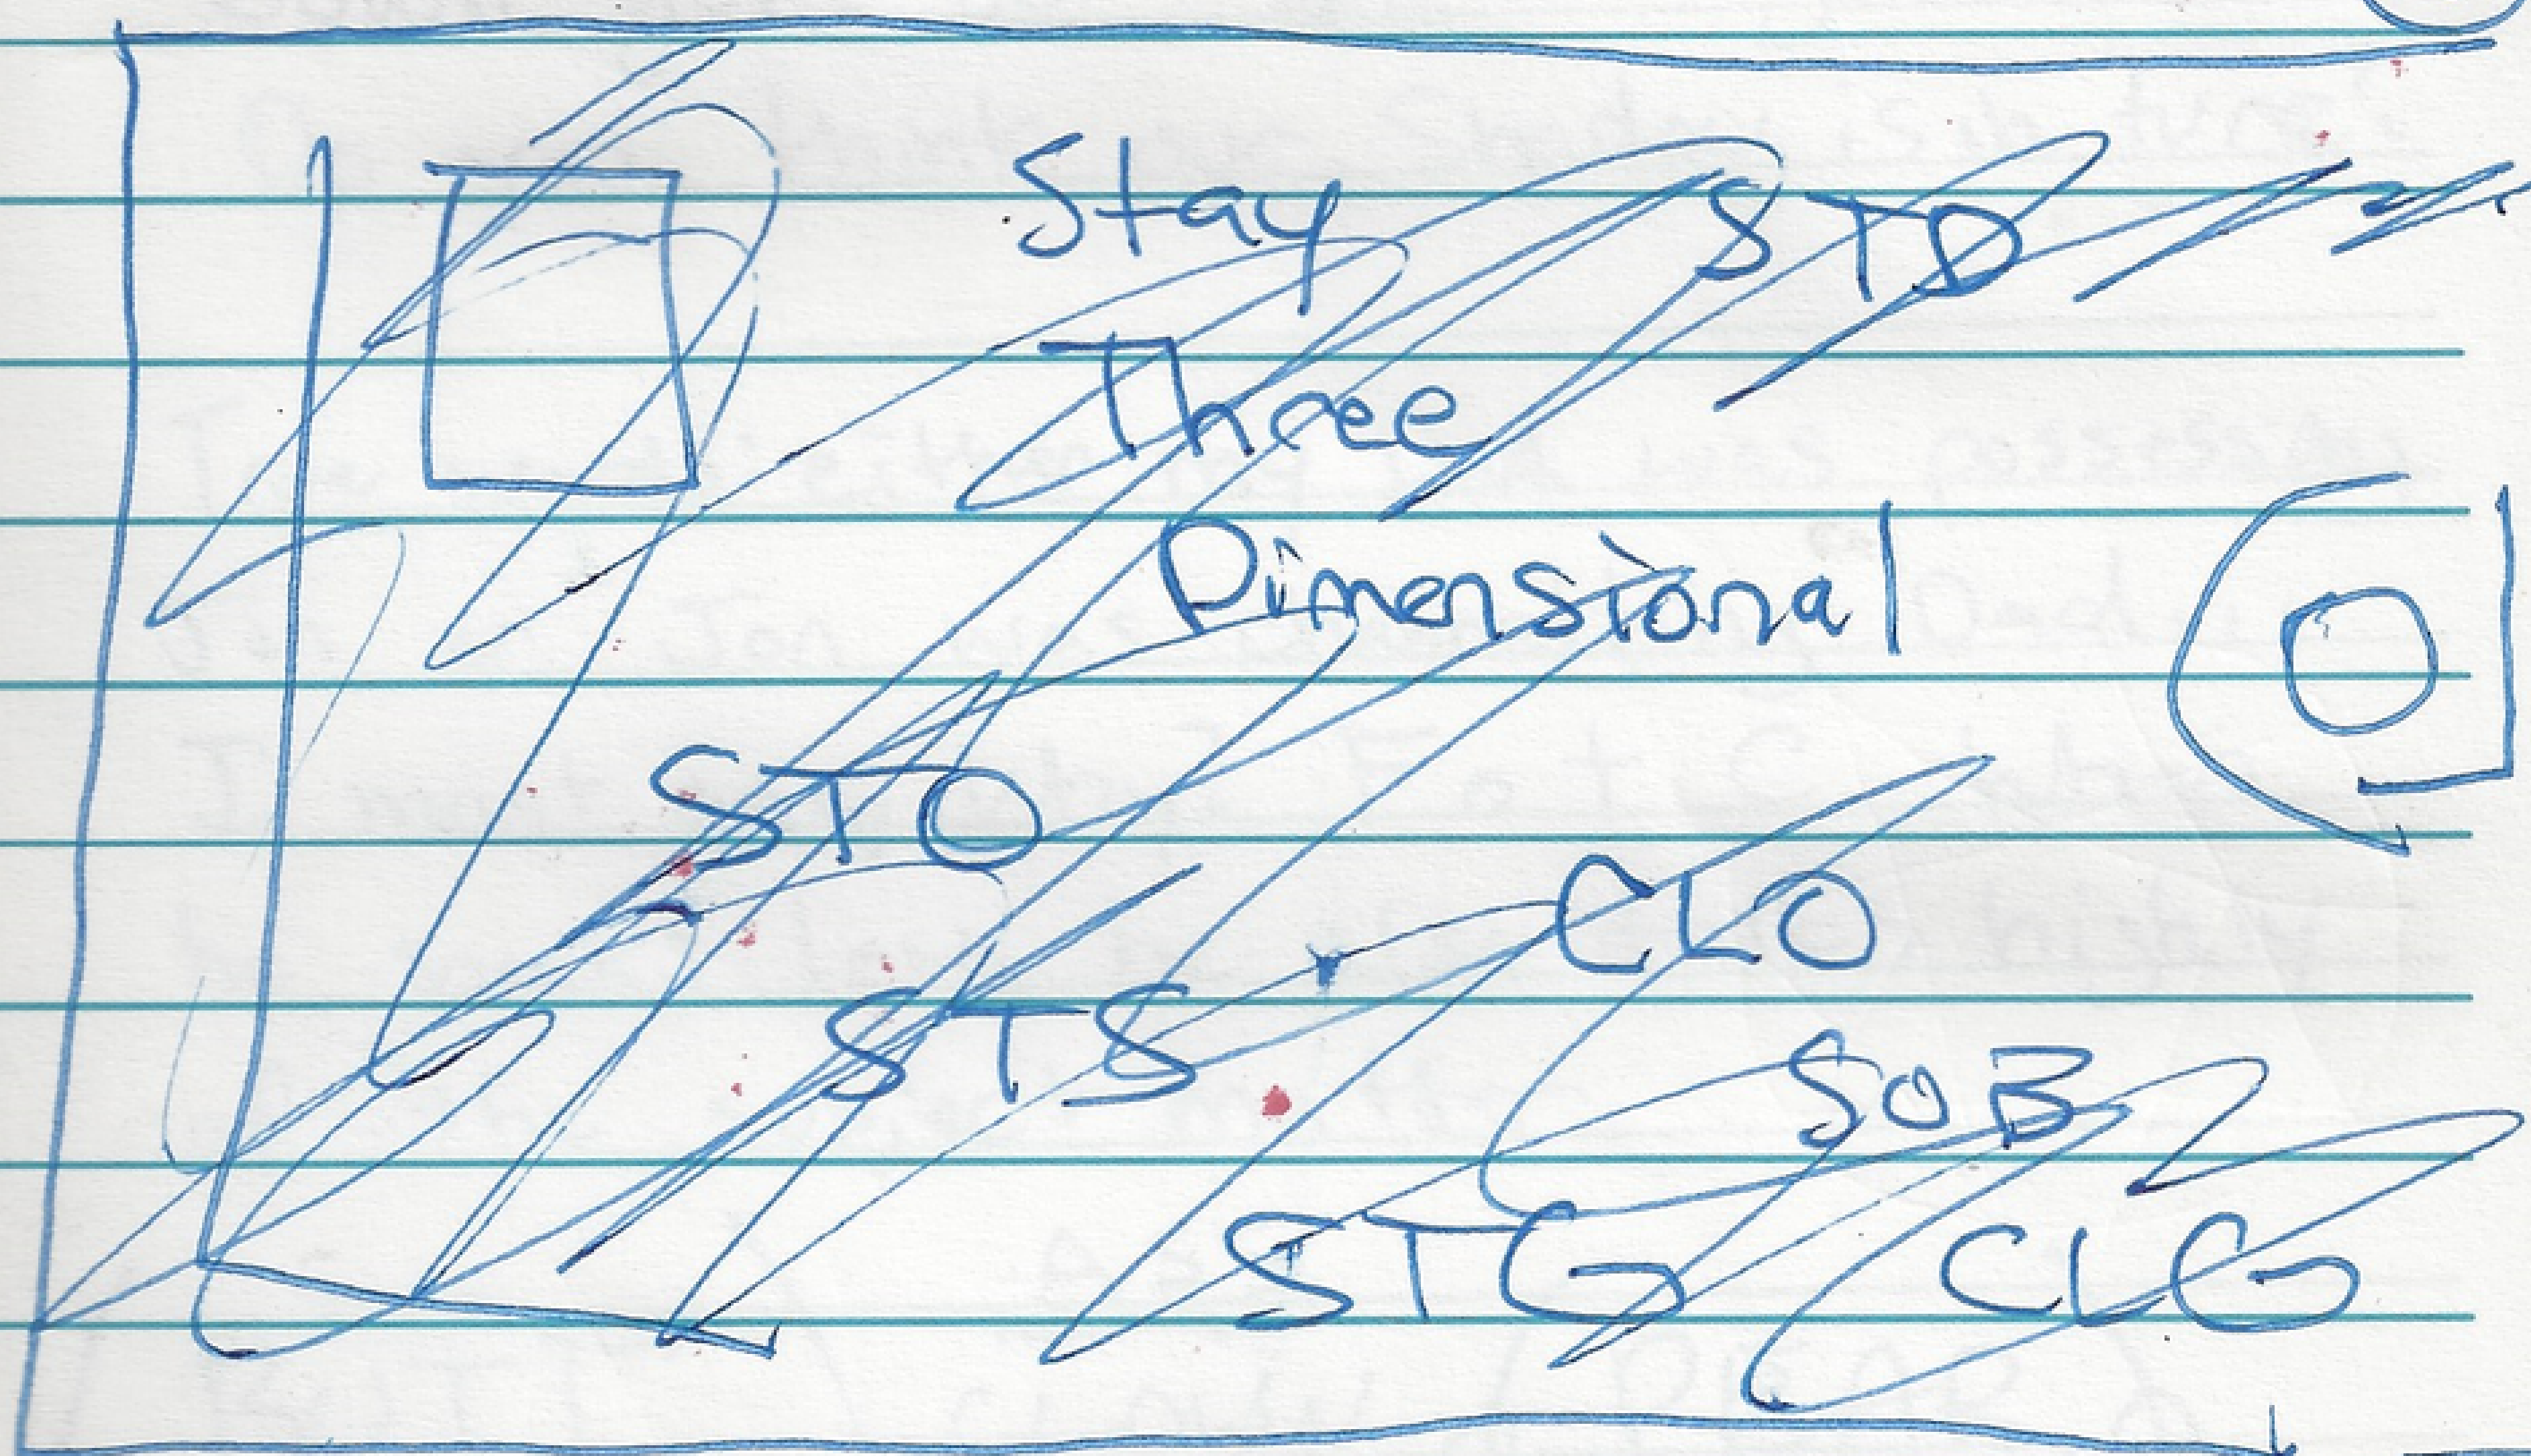 Stay STD
Three
Dimensional
STO
CLO
STS
SOB
STG CLG